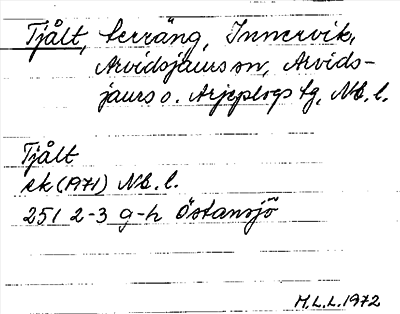 Tjålt, terräng, Innervik,
Arvidsjaurs sn, Arvids-
jaurs o. Arjeplogs tg, Nb. l.
Tjålt
ek (1971) Nb. l.
25 I 2-3 g-h Östansjö
M.L.L. 1972